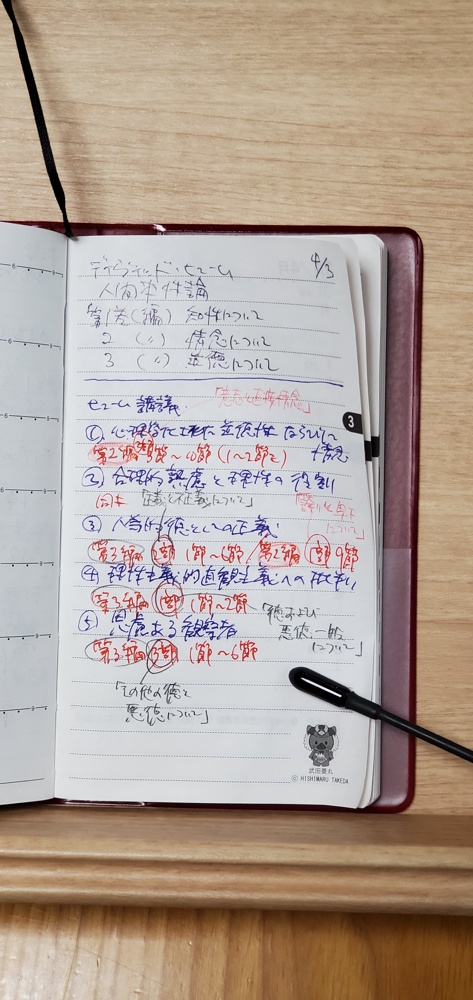 デイヴィッド・ヒューム 4/3
人間本性論
第1巻(編) 知性について
2 (〃) 情念について
3 (〃) 道徳について
ヒューム講義 「意志と直接情念」
① 心理学 道徳性 ならびに
第2編 第3部 ~ 節 (1~2節) 情念
② 合理的熟慮と理性の役割
同上 「正義と不正義について」
③ 人為的徳としての正義 について」
第3編 2部 1節~6節, 第2編 1部 9節
④ 理性主義的直観主義への批判
第3編 1部 1節~2節
⑤ 思慮ある観察者 「徳および
悪徳一般
について」
第3編 3部 1節~6節
「その他の徳と
悪徳について」
3
6
9
6
9
6
9
武田菱丸
© HISHIMARU TAKEDA